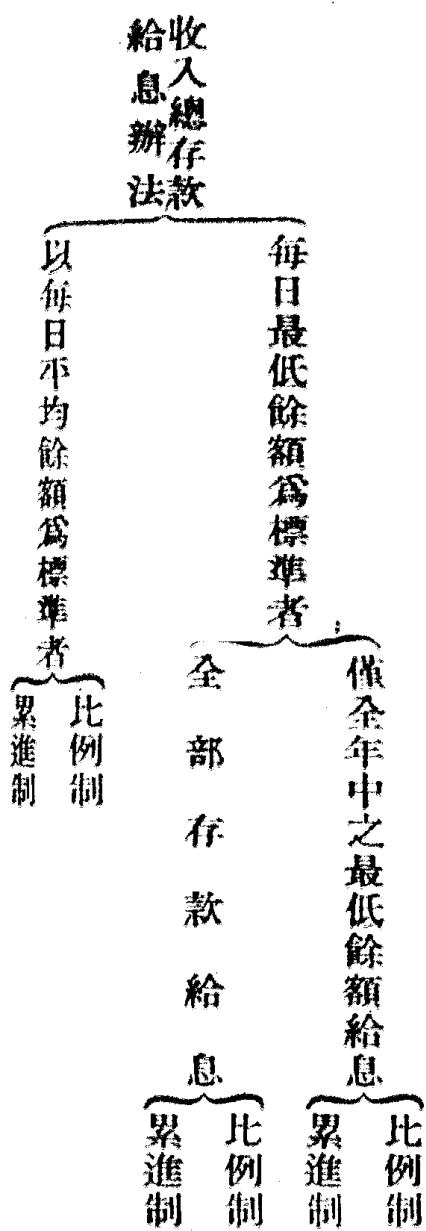 收入總存款
給息辦法
每日最低餘額爲標準者
僅全年中之最低餘額給息
比例制
累進制
全部存款給息
比例制
累進制
以每日平均餘額爲標準者
比例制
累進制